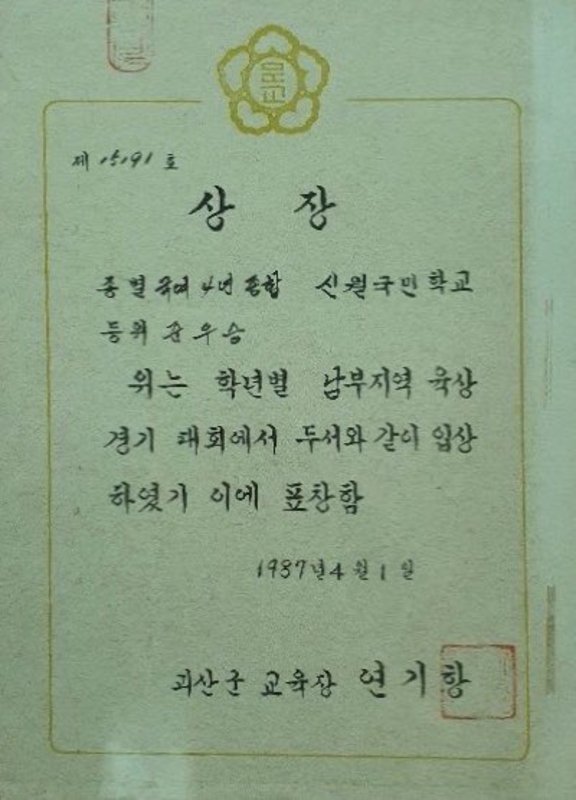 문교
제 15191 호
상 장
종별 국여 4년 종합 신월국민학교
등위 준우승
위는 학년별 남부지역 육상
경기 대회에서 두서와 같이 입상
하였기 이에 표창함
1987년 4월 1일
괴산군 교육장 연기항